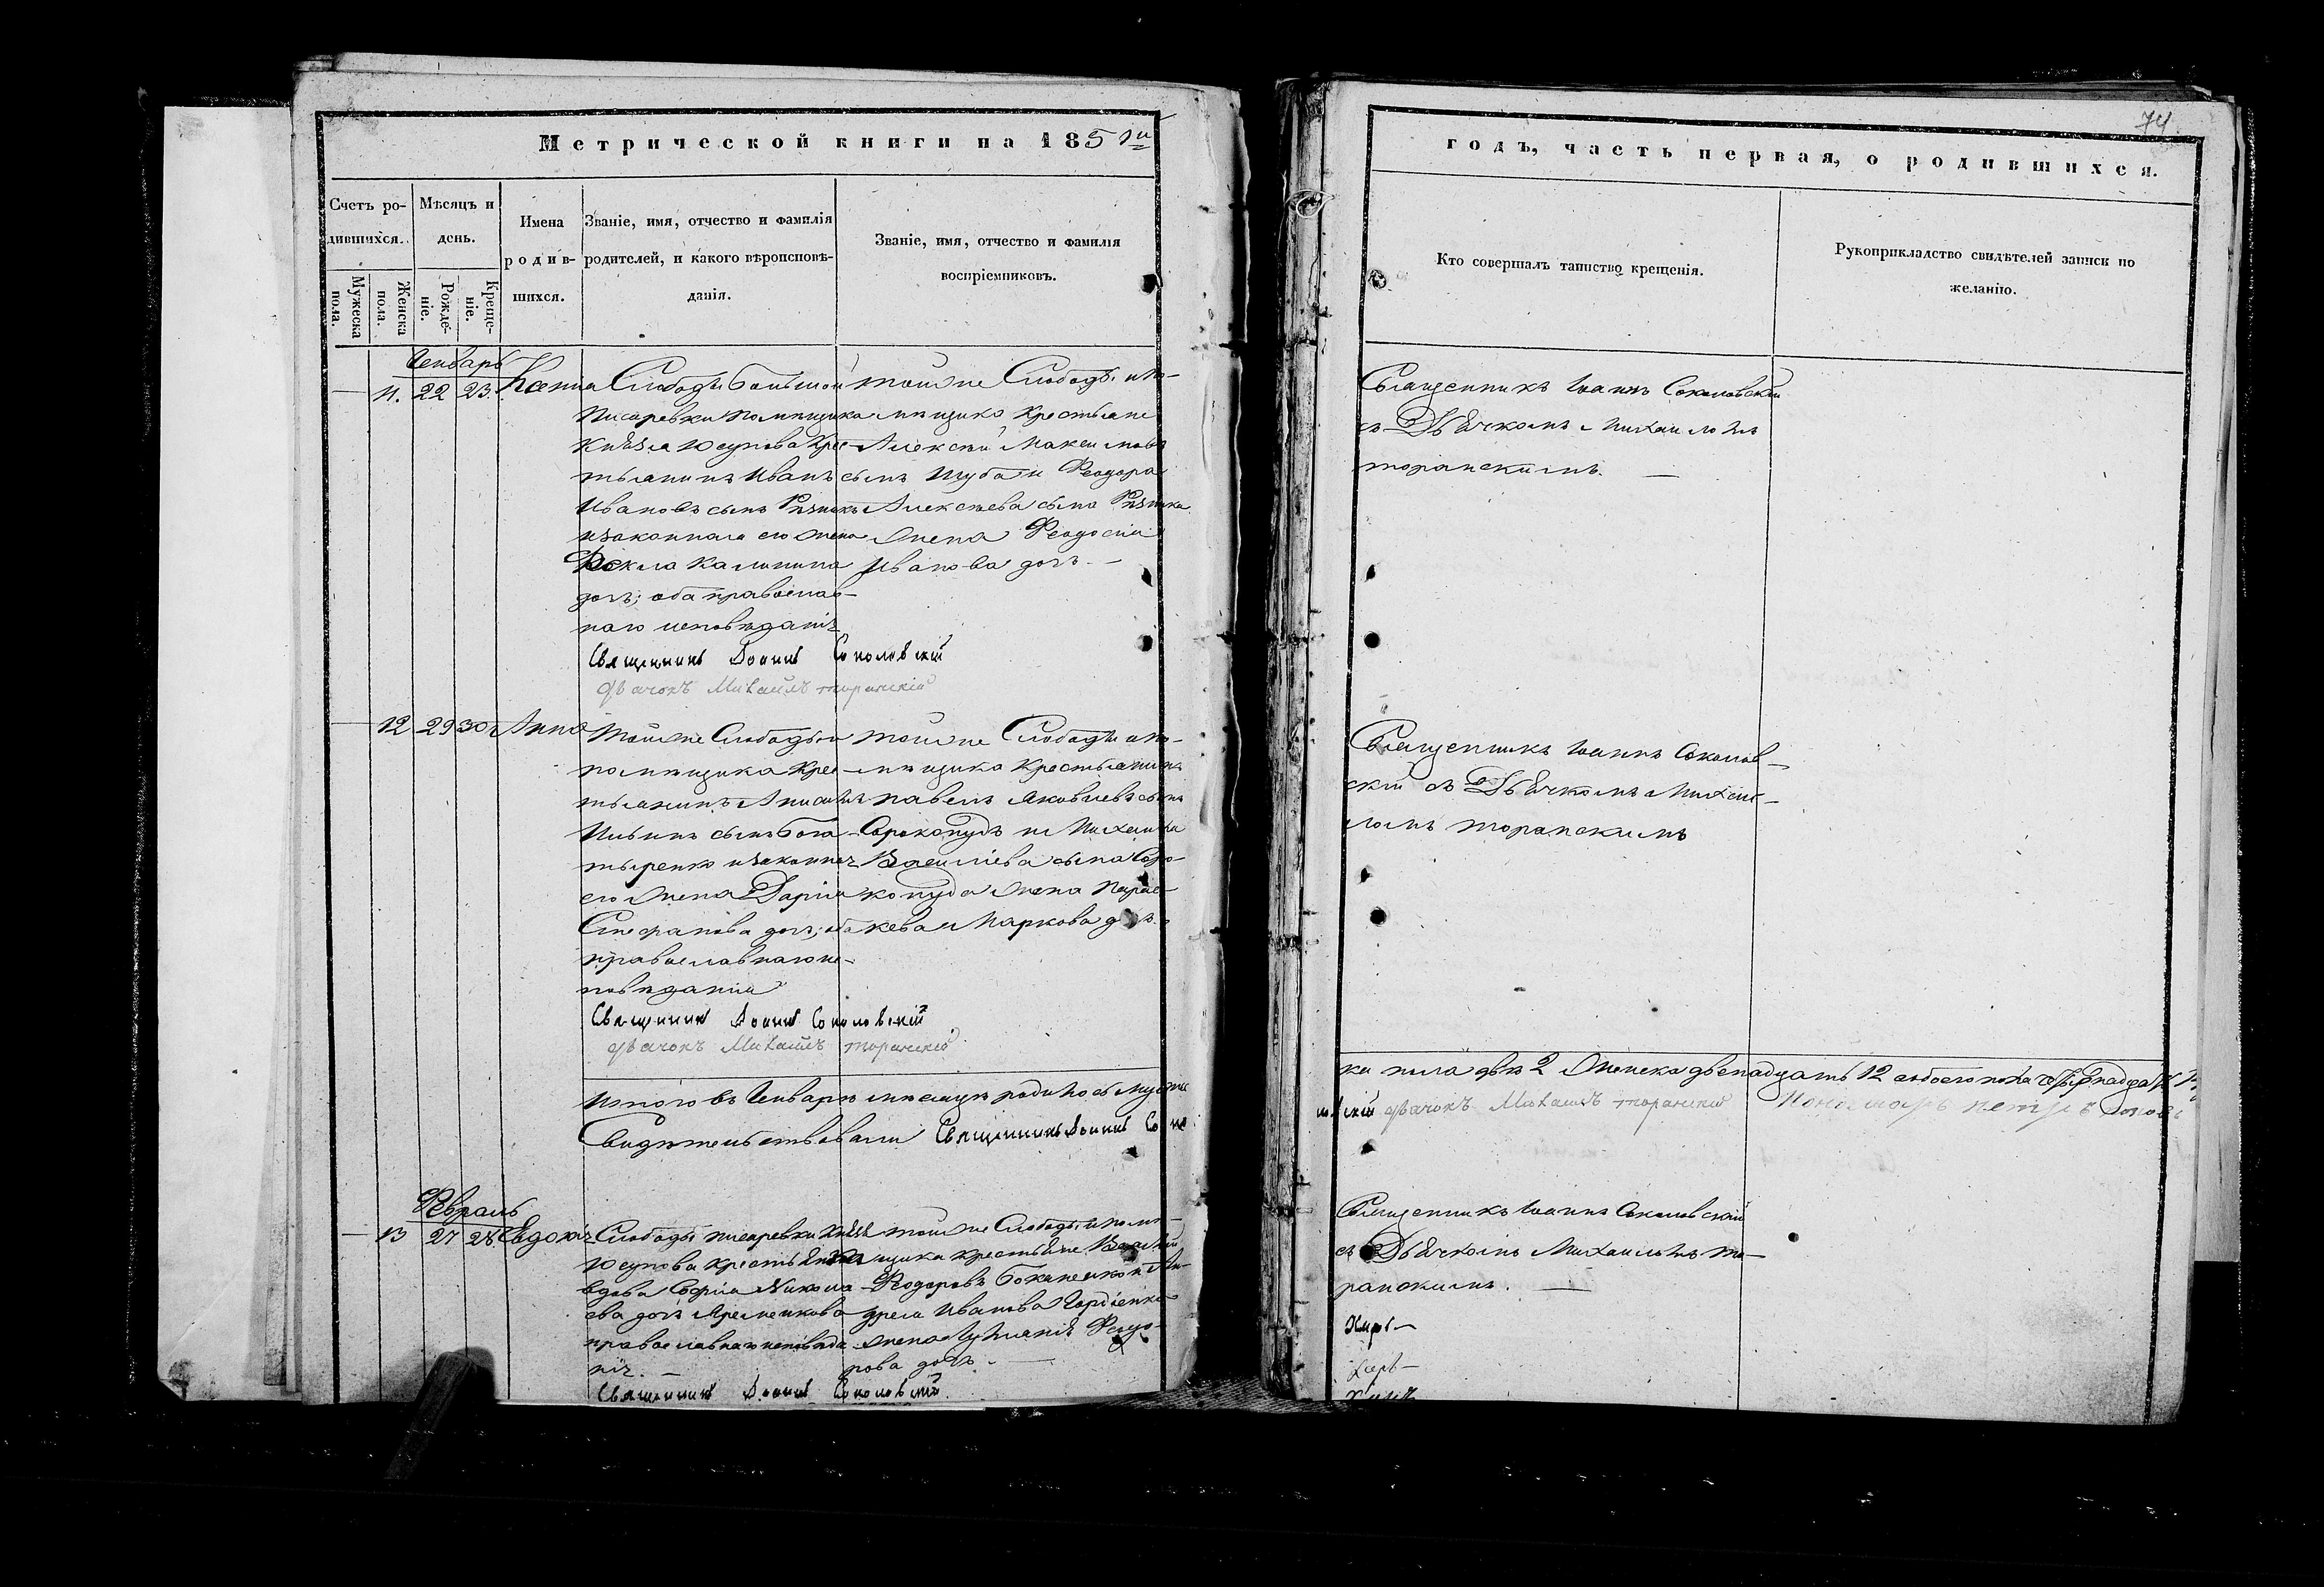 Метрической книги на 1851й
Счетъ ро-
дившихся.
Мужеска
пола.
Женска
пола.
Мѣсяцъ и
день.
Рожде-
ніе.
Креще-
ніе.
Имена
родив-
шихся.
Званіе, имя, отчество и фамилія
родителей, и какого вѣроисповѣ-
данія.
Званіе, имя, отчество и фамилія
воспріемниковъ.
Генварь
11. 22 23. Ксенія
Слободы Большой
Писаревки помѣщика
Князя Юсупова Кре-
стьянинъ Иванъ
Ивановъ сынъ Рѣзникъ
и законная его жена
Фекла Калинина
дочь; оба православ-
наго исповѣданія
той же Слободы и по-
мѣщика Крестьяне
Алексѣй Максимовъ
сынъ Шуба и Феодора
Алексѣева сына Рѣзника
жена Феодосія
Иванова дочь.
Священникъ Іоаннъ Соколовскій
Дьячокъ Михаилъ Торанскій
12 29 30 Анна
Той же Слободы и
помѣщика Кре-
стьянинъ
Ильинъ сынъ Бога-
тыренко и законная
его жена Дарія
Стефанова дочь; оба
православнаго ис-
повѣданія
той же Слободы и по-
мѣщика Крестьянинъ
Павелъ Яковлевъ сынъ
Сорокопудъ и Михаила
Василіева сына Соро-
копуда жена Парас-
кева Маркова дочь.
Священникъ Іоаннъ Соколовскій
Дьячокъ Михаилъ Торанскій
Итого въ Генварѣ мѣсяцѣ родилось муже
Свидѣтельствовали Священникъ Іоаннъ Соко
Февраль
13 27 28 Евдокія
Слободы Писаревки Князя
Юсупова
вдова Софія
дочь
православнаго исповѣда
нія.
той же Слободы и помѣ-
щика крестьяне Василій
Феодоровъ и Ан-
дрея Иванова Гордіенка
жена Феодо-
рова дочь.
Священникъ Іоаннъ Соколовскій
74
годъ, часть первая, о родившихся.
Кто совершалъ таинство крещенія.
Рукоприкладство свидѣтелей записи по
желанію.
Священникъ Іоаннъ Соколовскій
съ Дьячкомъ Михаиломъ
Торанскимъ.
Священникъ Іоаннъ Соколов-
скій съ Дьячкомъ Михаи-
ломъ Торанскимъ
ка пола два 2 Женска двенадцать 12 обоего пола
ловскій Дьячокъ Михаилъ Торанскій Пономарь Петръ
Священникъ Іоаннъ Соколовскій
съ Дьячкомъ Михаиломъ То-
ранскимъ.